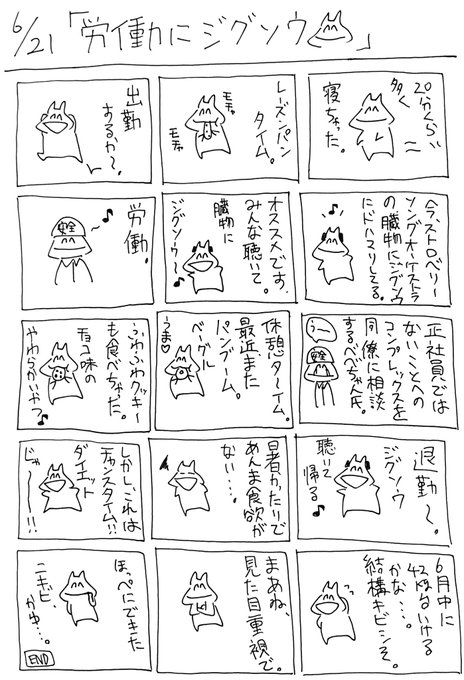 6/21「労働にジグソウ」
20分くらい
多く
寝ちゃった。
レーズンパン
タイム。
モチャ
モチャ
出勤
するか〜。
今、ストロベリー
ソングオーケストラ
の臓物にジグソウ
にドハマりしてる。
オススメです、
みんな聴いて。
臓物に
ジグソウ〜♪
労働。
安全
正社員では
ないことへの
コンプレックスを
同僚に相談
するべべちゃん氏。
うー
安全
休憩ターイム。
最近また
パンブーム。
ベーグル
うま♡
ふわふわクッキー
も食べちゃった。
チョコ味の
やわらかいやつ♪
退勤〜。
ジグソウ
聴いて
帰る♪
暑かったりで
あんま食欲が
ない…。
しかし、これは
チャンスタイム!!
ダイエット
じゃ〜〜!!
6月中に
42kg台いける
かな…。
結構キビシそ。
まあね、
見た目重視で。
ほっぺにできた
ニキビ
かゆ…。
END